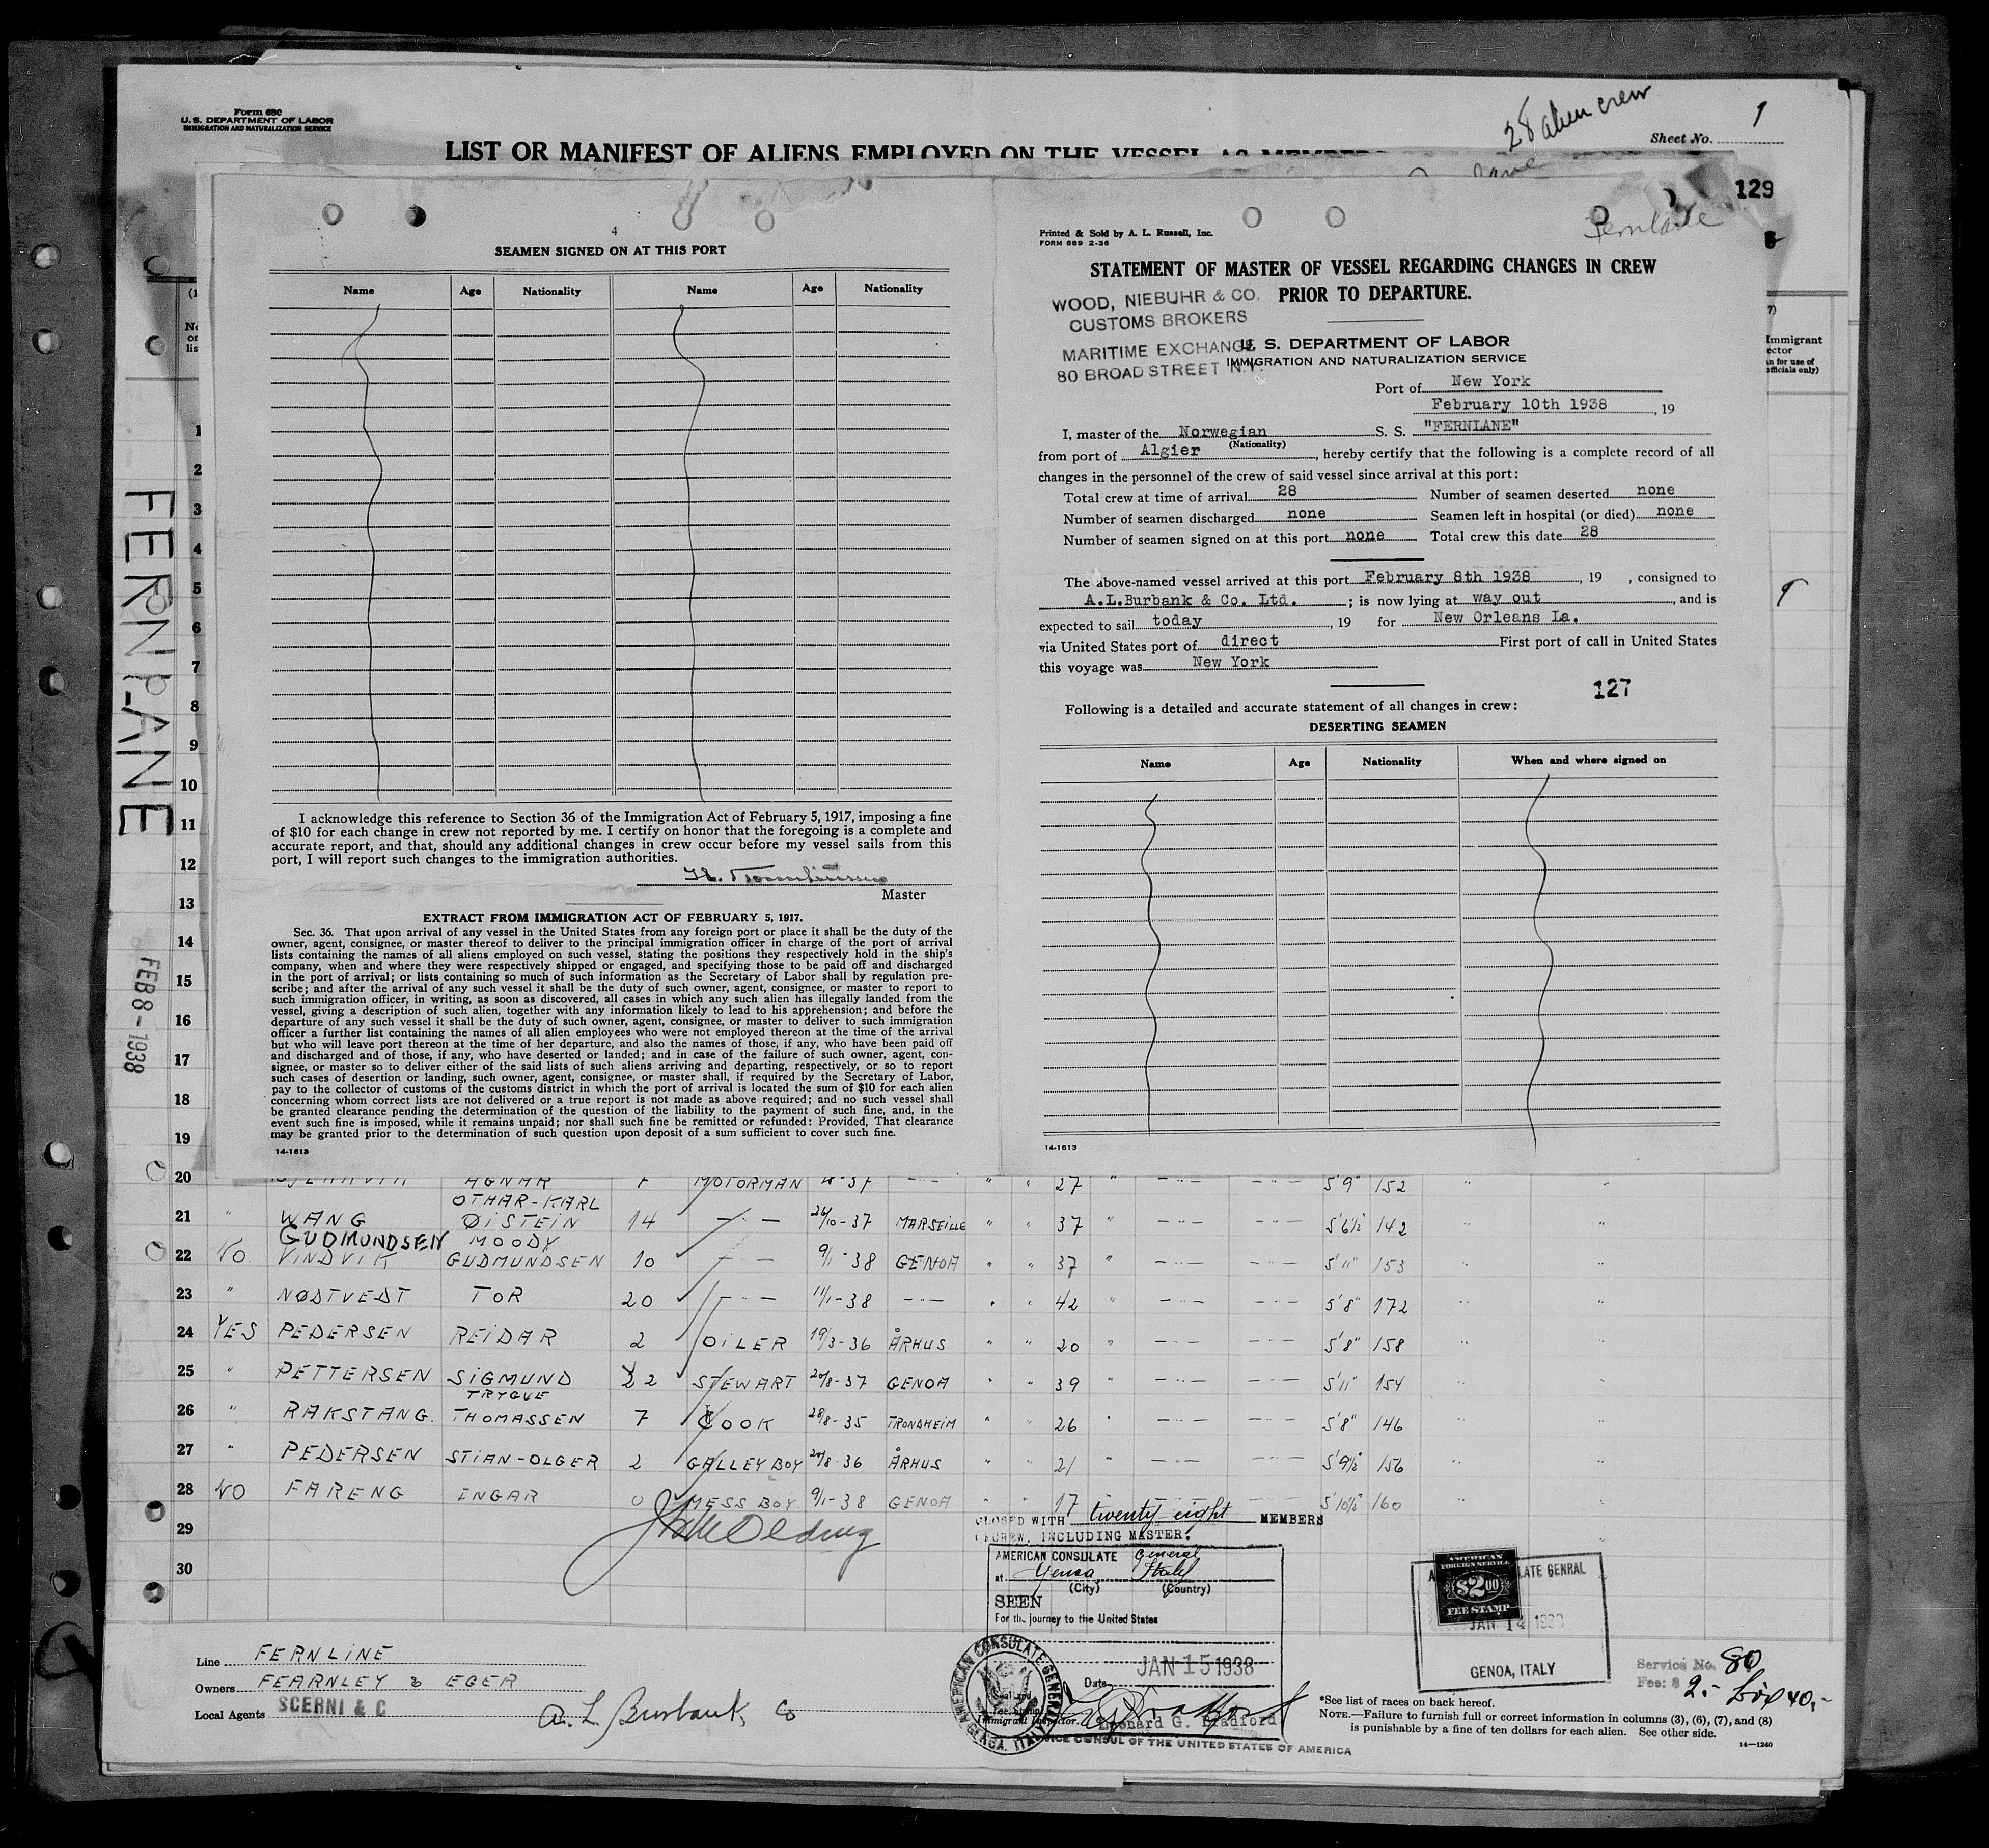 Form 680
U. S. DEPARTMENT OF LABOR
IMMIGRATION AND NATURALIZATION SERVICE
28 alien crew
Sheet No. 1
LIST OR MANIFEST OF ALIENS EMPLOYED ON THE VESSEL AS MEMBERS
129
4
SEAMEN SIGNED ON AT THIS PORT
Name Age Nationality Name Age Nationality
I acknowledge this reference to Section 36 of the Immigration Act of February 5, 1917, imposing a fine
of $10 for each change in crew not reported by me. I certify on honor that the foregoing is a complete and
accurate report, and that, should any additional changes in crew occur before my vessel sails from this
port, I will report such changes to the immigration authorities.
Master
EXTRACT FROM IMMIGRATION ACT OF FEBRUARY 5, 1917.
Sec. 36. That upon arrival of any vessel in the United States from any foreign port or place it shall be the duty of the
owner, agent, consignee, or master thereof to deliver to the principal immigration officer in charge of the port of arrival
lists containing the names of all aliens employed on such vessel, stating the positions they respectively hold in the ship's
company, when and where they were respectively shipped or engaged, and specifying those to be paid off and discharged
in the port of arrival; or lists containing so much of such information as the Secretary of Labor shall by regulation pre-
scribe; and after the arrival of any such vessel it shall be the duty of such owner, agent, consignee, or master to report to
such immigration officer, in writing, as soon as discovered, all cases in which any such alien has illegally landed from the
vessel, giving a description of such alien, together with any information likely to lead to his apprehension; and before the
departure of any such vessel it shall be the duty of such owner, agent, consignee, or master to deliver to such immigration
officer a further list containing the names of all alien employees who were not employed thereon at the time of the arrival
but who will leave port thereon at the time of her departure, and also the names of those, if any, who have been paid off
and discharged and of those, if any, who have deserted or landed; and in case of the failure of such owner, agent, con-
signee, or master so to deliver either of the said lists of such aliens arriving and departing, respectively, or so to report
such cases of desertion or landing, such owner, agent, consignee, or master shall, if required by the Secretary of Labor,
pay to the collector of customs of the customs district in which the port of arrival is located the sum of $10 for each alien
concerning whom correct lists are not delivered or a true report is not made as above required; and no such vessel shall
be granted clearance pending the determination of the question of the liability to the payment of such fine, and, in the
event such fine is imposed, while it remains unpaid; nor shall such fine be remitted or refunded: Provided, That clearance
may be granted prior to the determination of such question upon deposit of a sum sufficient to cover such fine.
14-1613
Printed & Sold by A. L. Russell, Inc.
FORM 689 2-36
Fernlane
STATEMENT OF MASTER OF VESSEL REGARDING CHANGES IN CREW
PRIOR TO DEPARTURE.
WOOD, NIEBUHR & CO.
CUSTOMS BROKERS
MARITIME EXCHANGE
80 BROAD STREET N.Y.
U. S. DEPARTMENT OF LABOR
IMMIGRATION AND NATURALIZATION SERVICE
Port of New York
February 10th 1938, 19
I, master of the Norwegian S. S. "FERNLANE"
(Nationality)
from port of Algier, hereby certify that the following is a complete record of all
changes in the personnel of the crew of said vessel since arrival at this port:
Total crew at time of arrival 28 Number of seamen deserted none
Number of seamen discharged none Seamen left in hospital (or died) none
Number of seamen signed on at this port none Total crew this date 28
The above-named vessel arrived at this port February 8th 1938, 19 , consigned to
A.L.Burbank & Co. Ltd. ; is now lying at way out, and is
expected to sail today, 19 for New Orleans La.
via United States port of direct First port of call in United States
this voyage was New York
127
Following is a detailed and accurate statement of all changes in crew:
DESERTING SEAMEN
Name Age Nationality When and where signed on
14-1613
FERNLANE
FEB 8 - 1938
1
2
3
4
5
6
7
8
9
10
11
12
13
14
15
16
17
18
19
20 AGNAR MOTORMAN 27 " 5'9" 152
OTHAR-KARL
21 " WANG ØISTEIN 14 — " — 26/10-37 MARSEILLE " " 37 " 5'6½ 142
GUDMUNDSEN MOODY
22 NO VINDVIK GUDMUNDSEN 10 — " — 9/1-38 GENOA " " 37 " 5'11" 153
23 " NØSTVEDT TOR 20 — " — 11/1-38 — " — " " 42 " 5'8" 172
24 YES PEDERSEN REIDAR 2 OILER 19/3-36 ÅRHUS " " 20 " 5'8" 158
25 " PETTERSEN SIGMUND 22 STEWART GENOA " " 39 5'11" 154
TRYGVE
26 " RAKSTANG. THOMASSEN 7 COOK 28/8-35 TRONDHEIM " " 26 " 5'8" 146
27 " PEDERSEN STIAN-OLGER 2 GALLEY BOY ÅRHUS " " 21 " 5'9½" 156
28 NO FARENG INGAR 0 MESS BOY 9/1-38 GENOA " " 17 " 5'10½" 160
29
30
CLOSED WITH twenty eight MEMBERS
CREW, INCLUDING MASTER.
AMERICAN CONSULATE General
at Genoa Italy
(City) (Country)
SEEN
For the journey to the United States
Date JAN 15 1938
AMERICAN CONSULATE GENERAL
GENOA, ITALY
Immigrant Inspector.
Leonard G. Bradford
VICE CONSUL OF THE UNITED STATES OF AMERICA
AMERICAN
FOREIGN SERVICE
$2.00
FEE STAMP
JAN 14 1938
GENOA, ITALY
Service No. 80
Fee: $ 2.-
Line FERNLINE
Owners FEARNLEY & EGER
Local Agents SCERNI & C
A. L. Burbank, Co
*See list of races on back hereof.
NOTE.—Failure to furnish full or correct information in columns (3), (6), (7), and (8)
is punishable by a fine of ten dollars for each alien. See other side.
14—1240